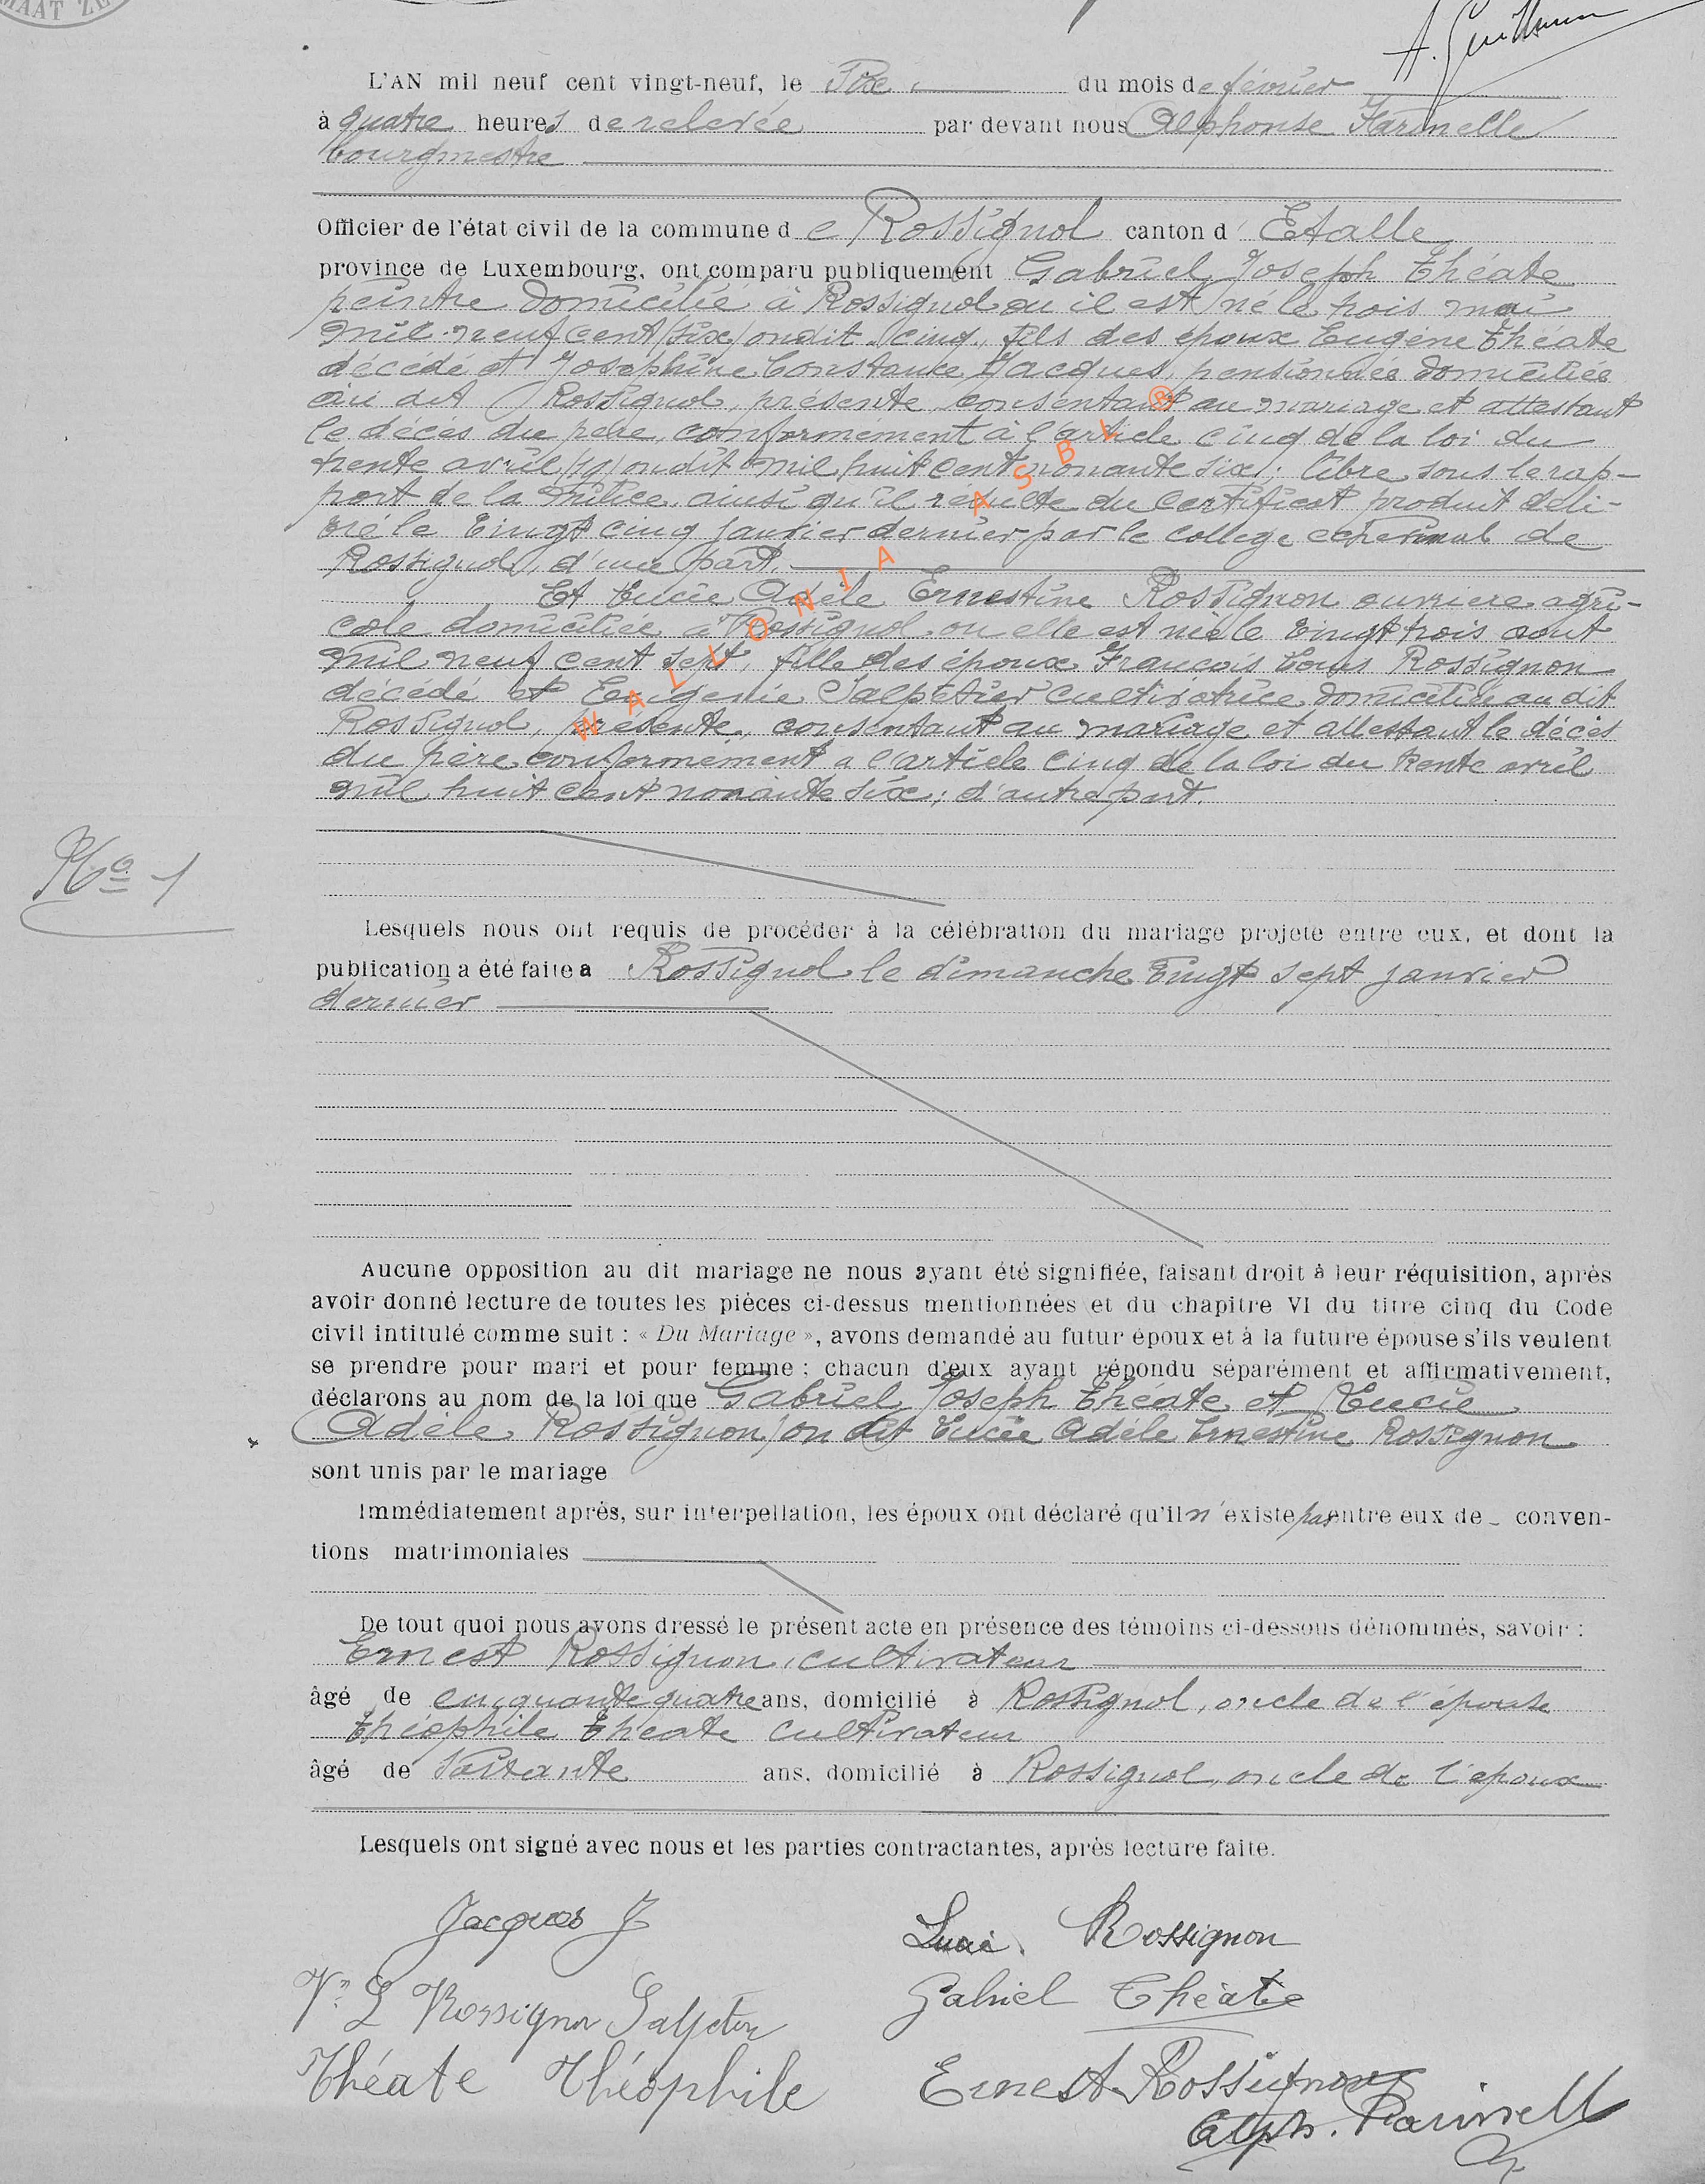 MAAT ZE
A. Guillaume
L'AN mil neuf cent vingt-neuf, le six du mois de février
à quatre heures de relevée par devant nous Alphonse Farinelle
bourgmestre
Officier de l'état civil de la commune de Rossignol canton d' Etalle
province de Luxembourg, ont comparu publiquement Gabriel Joseph Théate
peintre domicilié à Rossignol ou il est né le trois mai
mil neuf cent six/on dit cinq, fils des époux Eugène Théate
décédé et Joséphine Constance Jacques, pensionnée domiciliée
au dit Rossignol, présente, consentant au mariage et attestant
le décès du père, conformément à l'article cinq de la loi du
trente avril on dit mil huit cent nonante six; libre sous le rap-
port de la milice, ainsi qu'il résulte du certificat produit déli-
vré le vingt cinq janvier dernier par le collège echevinal de
Rossignol, d'une part.
Et Lucie Adèle Ernestine Rossignon ouvrière agri-
cole domiciliée à Rossignol ou elle est née le vingt trois aout
mil neuf cent sept, fille des époux François Louis Rossignon
décédé et Eugenie Salpétier cultivatrice domiciliée au dit
Rossignol, présente, consentant au mariage et attestant le décès
du père conformément a l'article cinq de la loi du trente avril
mil huit cent nonante six; d'autre part.
WALLONIA ASBL ®
No 1
Lesquels nous ont requis de procéder à la célébration du mariage projeté entre eux, et dont la
publication a été faite a Rossignol le dimanche vingt sept janvier
dernier
Aucune opposition au dit mariage ne nous ayant été signifiée, faisant droit à leur réquisition, après
avoir donné lecture de toutes les pièces ci-dessus mentionnées et du chapitre VI du titre cinq du Code
civil intitulé comme suit : « Du Mariage », avons demandé au futur époux et à la future épouse s'ils veulent
se prendre pour mari et pour femme ; chacun d'eux ayant répondu séparément et affirmativement,
déclarons au nom de la loi que Gabriel Joseph Théate et Lucie
Adèle Rossignon/on dit Lucie Adèle Ernestine Rossignon
sont unis par le mariage
Immédiatement après, sur interpellation, les époux ont déclaré qu'il n'existe pas entre eux de - conven-
tions matrimoniales
De tout quoi nous avons dressé le présent acte en présence des témoins ci-dessous dénommés, savoir :
Ernest Rossignon, cultivateur
âgé de cinquante quatre ans, domicilié à Rossignol, oncle de l'épouse
Théophile Théate cultivateur
âgé de ans, domicilié à Rossignol, oncle de l'époux
Lesquels ont signé avec nous et les parties contractantes, après lecture faite.
Jacques J
Lucie Rossignon
Ve L Rossignon Salpétier
Gabriel Théate
Théate Théophile
Ernest Rossignon
Alph. Farinelle